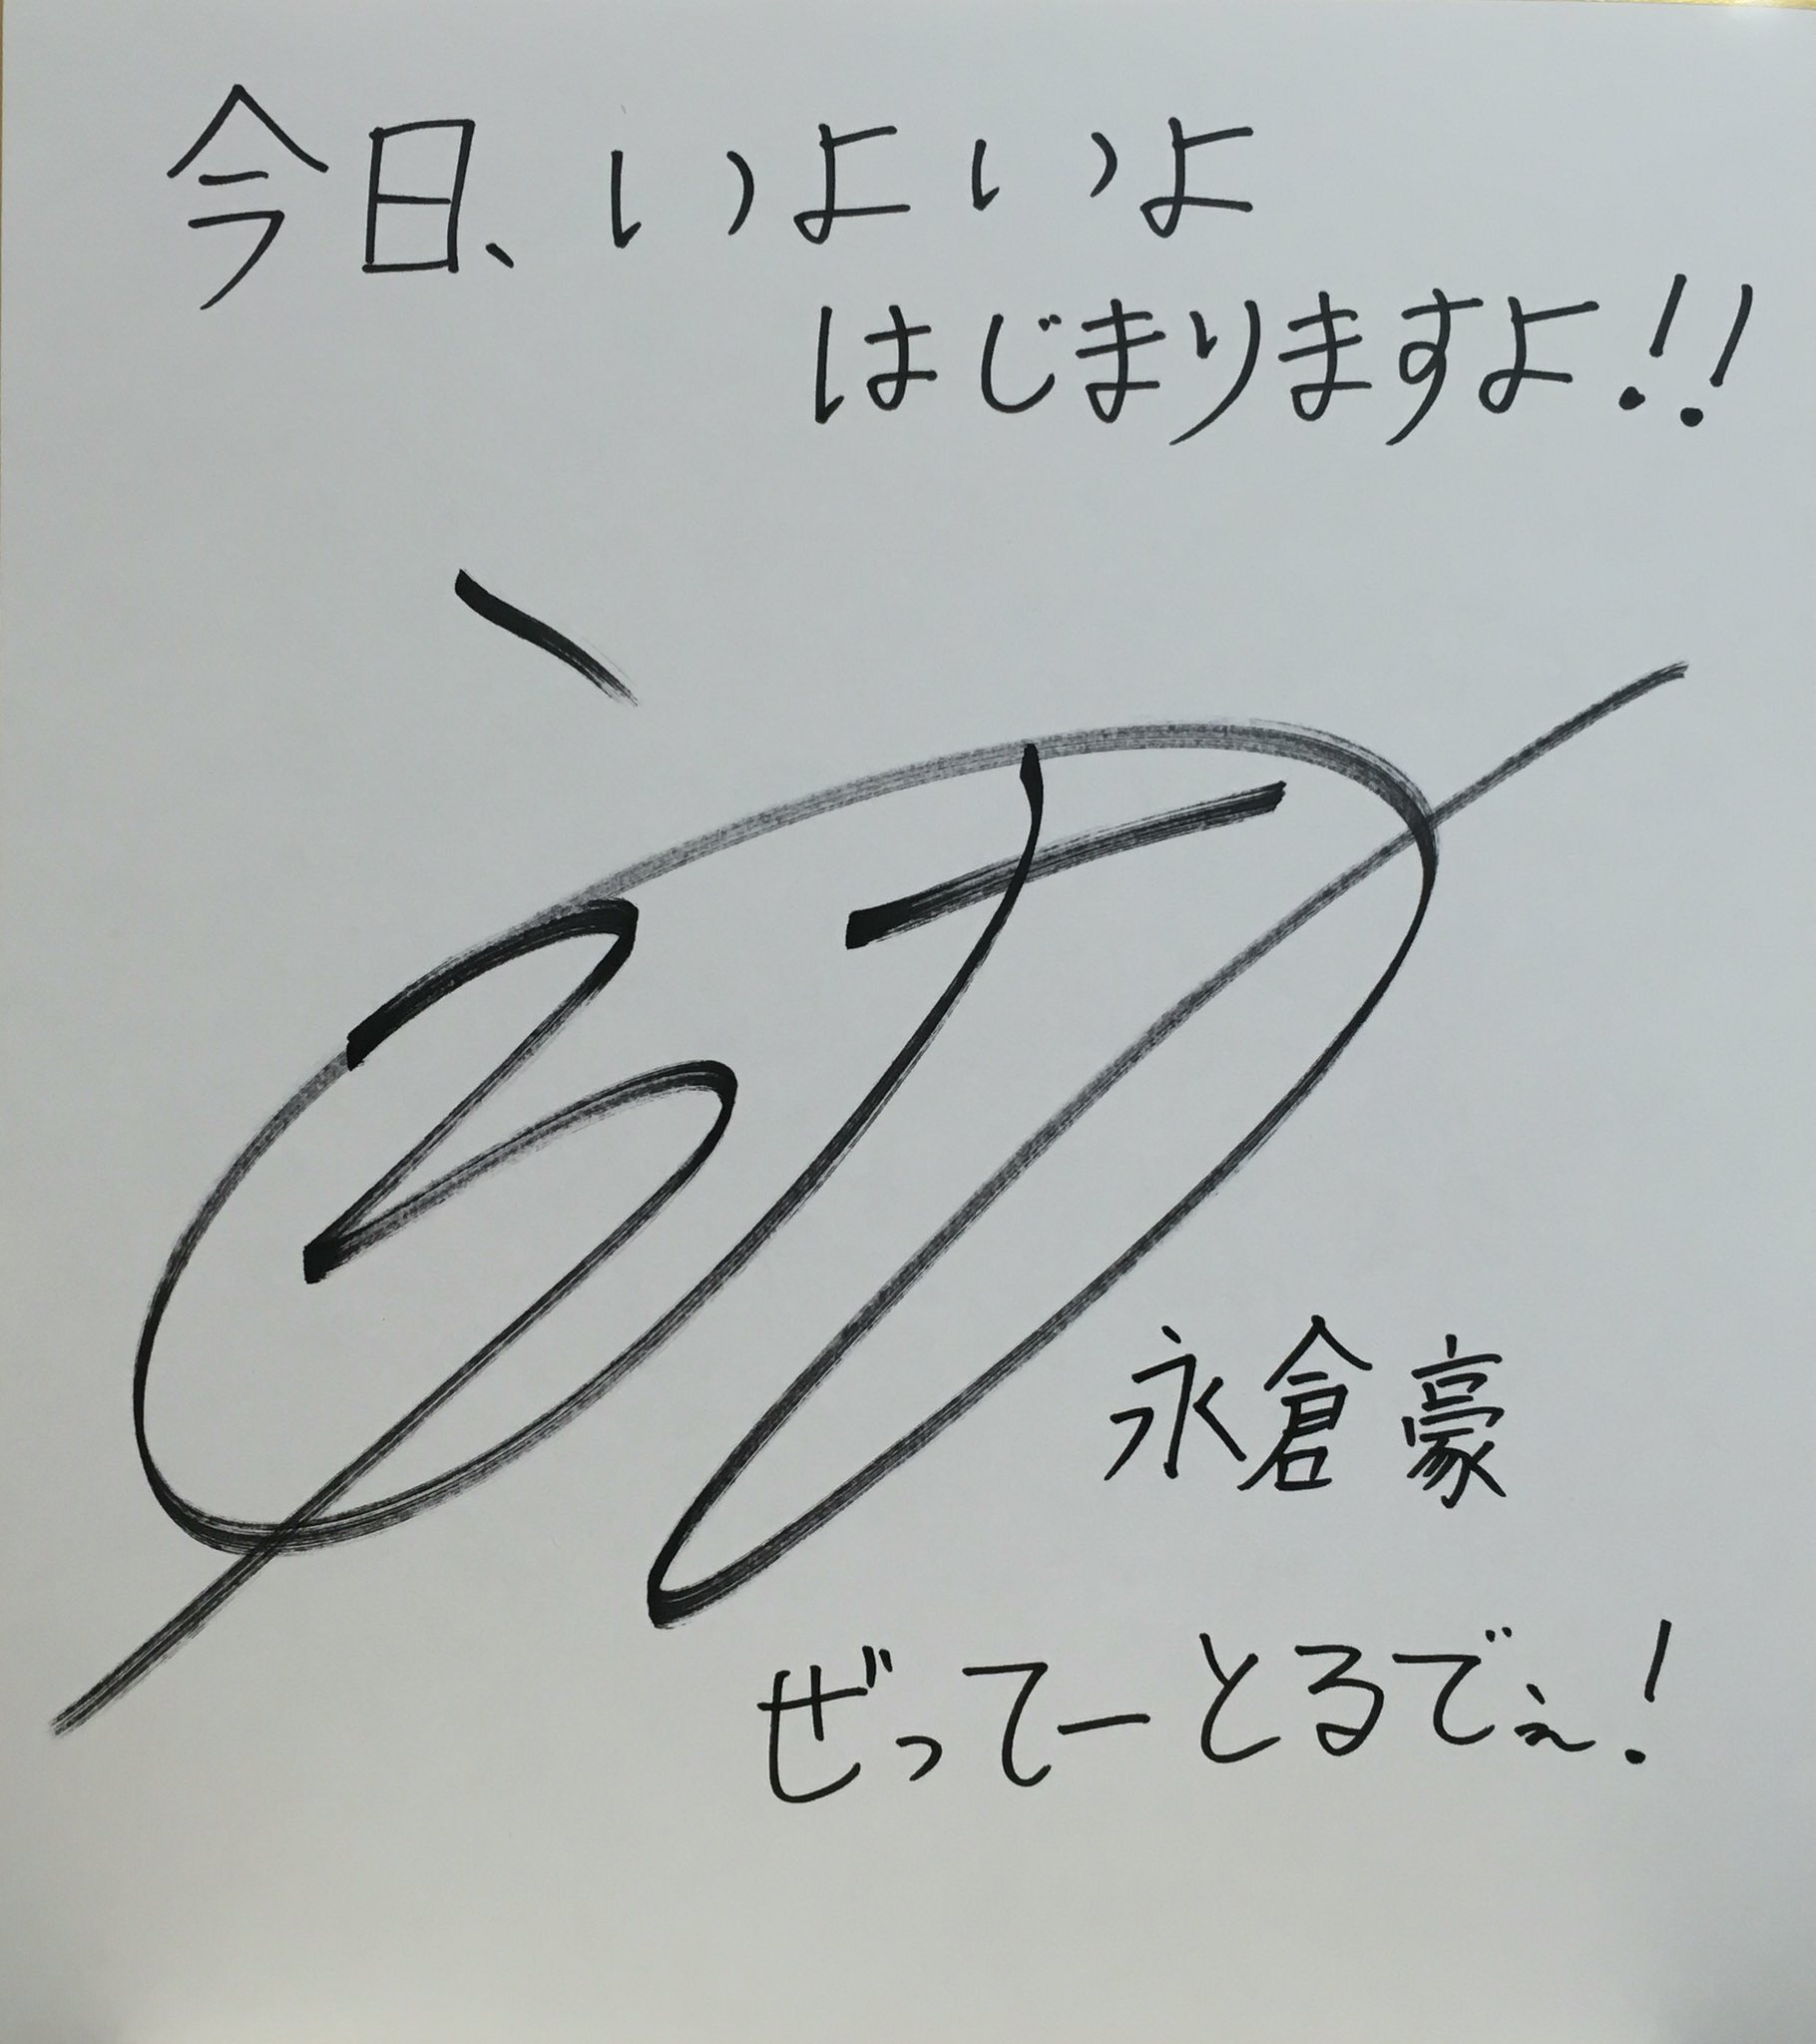 今日、いよいよ
はじまりますよ!!
永倉豪
ぜってーとるでぇ!